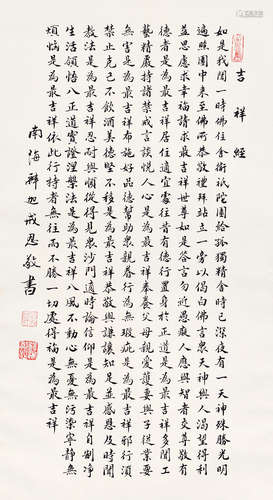 吉祥經
如是我聞一時佛住舍衞祇陀園給孤獨精舍時已深夜有一天神殊勝光明
遍照園中來至佛所恭敬禮拜站立一旁以偈白佛言眾天神與人渴望得利
益思慮求幸福請求最吉祥世尊如是答言勿近愚癡人應與智者交尊敬有
德者是為最吉祥居住適宜處往昔有德行置身於正道是為最吉祥多聞工
藝精嚴持諸禁戒言談悅人心是為最吉祥奉養父母親愛護妻與子從業要
無害是為最吉祥布施好品德幫助眾親眷行為無瑕疵是為最吉祥邪行須
禁止克己不飲酒美德堅不移是為最吉祥恭敬與謙讓知足並感恩及時聞
教法是為最吉祥忍耐與順從得見眾沙門適時論信仰是為最吉祥自制淨
生活領悟八正道實證涅槃法是為最吉祥八風不動心無憂無污染寧靜無
煩惱是為最吉祥依此行持者無往而不勝一切處得福是為最吉祥
南海釋迦戒忍敬書